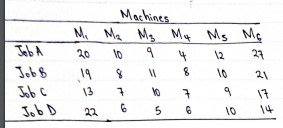 Machines
M₁ M₂ M₃ M₄ M₅ M6
Job A 20 10 9 4 12 27
Job B 19 8 11 8 10 21
Job C 13 7 10 7 9 17
Job D 22 6 5 6 10 14